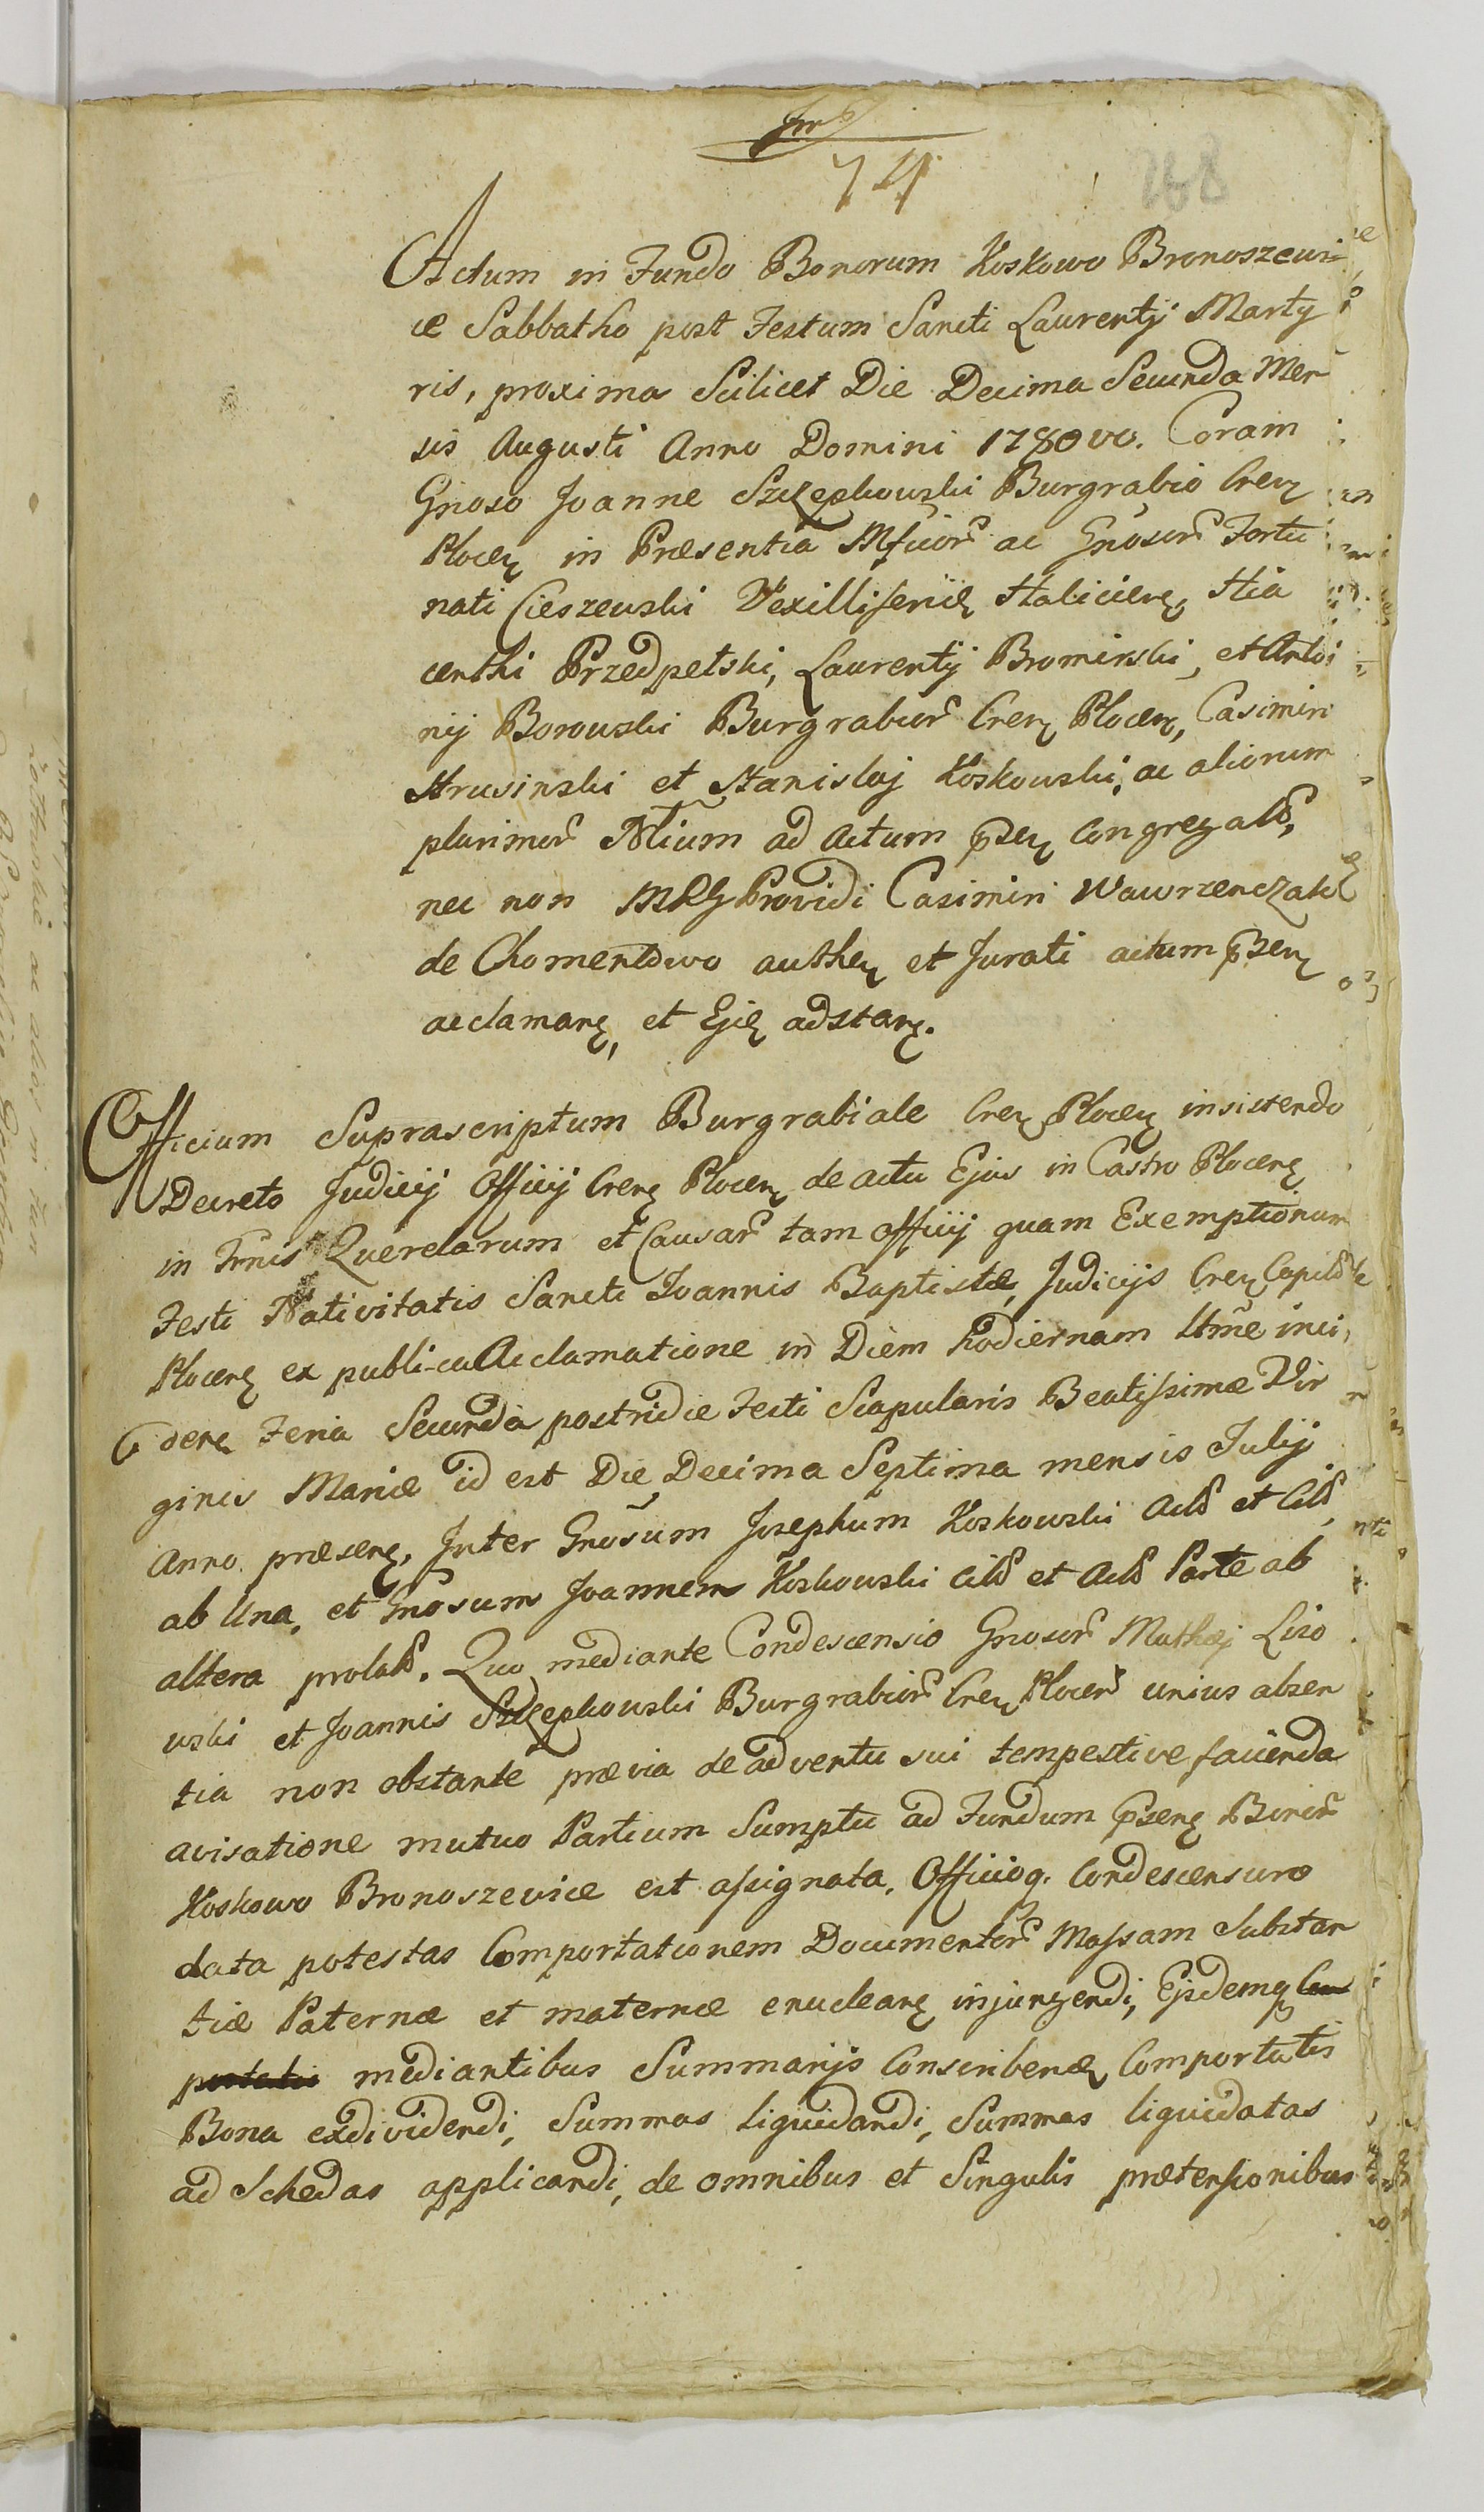 74
268
Actum in Fundo Bonorum Koskowo Bronoszewi-
cæ Sabbatho post Festum Sancti Laurentij Marty
ris, proxima Scilicet Die Decima Secunda Men
sis Augusti Anno Domini 1780vo. Coram
Gnoso Joanne Szczepkowski Burgrabio Cren
Plocen in Præsentia Mficor ac Gnosor Fortu
nati Cieszewski Vexilliferidę Halicien, Hia
centhi Przedpełski, Laurentij Bromirski, et Anto
nij Borowski Burgrabior Cren Plocen, Casimiri
Strusinski et Stanislaj Koskowski, ac aliorum
plurimor Nlium ad actum psen Congregator,
nec non Providi Casimiri Wawrzenczak
de Chomentowo authen et Jurati actum psen
acclaman, et Ejdę adstan.
Officium Suprascriptum Burgrabiale Cren Plocen insistendo
Decreto Judicij Officij Cren Plocen de actu Ejus in Castro Plocen
in Tnis Querelarum et Causar tam officij quam Exemptionum
Festi Nativitatis Sancti Joannis Baptistæ, Judicijs Cren Capitlibus
Plocen ex publica Acclamatione in Diem hodiernam ltme inci,
den Feria Secunda postridie Festi Scapularis Beatissimæ Vir
ginis Mariæ id est Die Decima Septima mensis Julij
Anno præsen, Inter Gnosum Josephum Koskowski Actor et Citt
ab Una, et Gnosum Joannem Koskowski Citt et Actor Parte ab
altera prolato. Quo mediante Condescensio Gnosor Mathæj Liso
wski et Joannis Szczepkowski Burgrabior Cren Plocen unius absen
tia non obstante prævia de adventu sui tempestive facienda
avisatione mutuo Partium Sumptu ad Fundum psen Bonor
Koskowo Bronoszewicæ est assignata, Officioq. Condescensuro
data potestas Comportationem Documentor Massam Substan
tiæ Paternæ et maternæ enuclean injungendi, Ejsdemq Com
portatis mediantibus Summarijs Conscriben Comportatis
Bona exdividendi, Summas liquidandi, Summas liquidatas
ad Schedas applicandi, de omnibus et Singulis prætensionibus